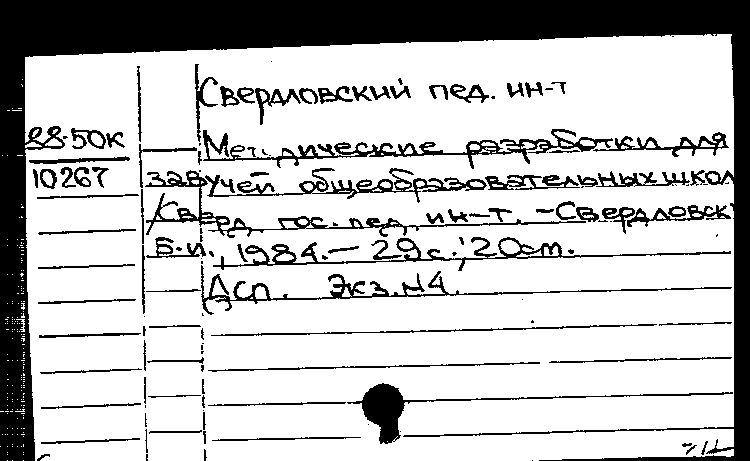 Свердловский пед. ин-т
88-50к
10267
Методические разработки для
завучей общеобразовательных школ
/Сверд. гос. пед. ин-т. - Свердловск
Б.и., 1984. - 29 с.; 20 см.
Дсп. Экз. №4.